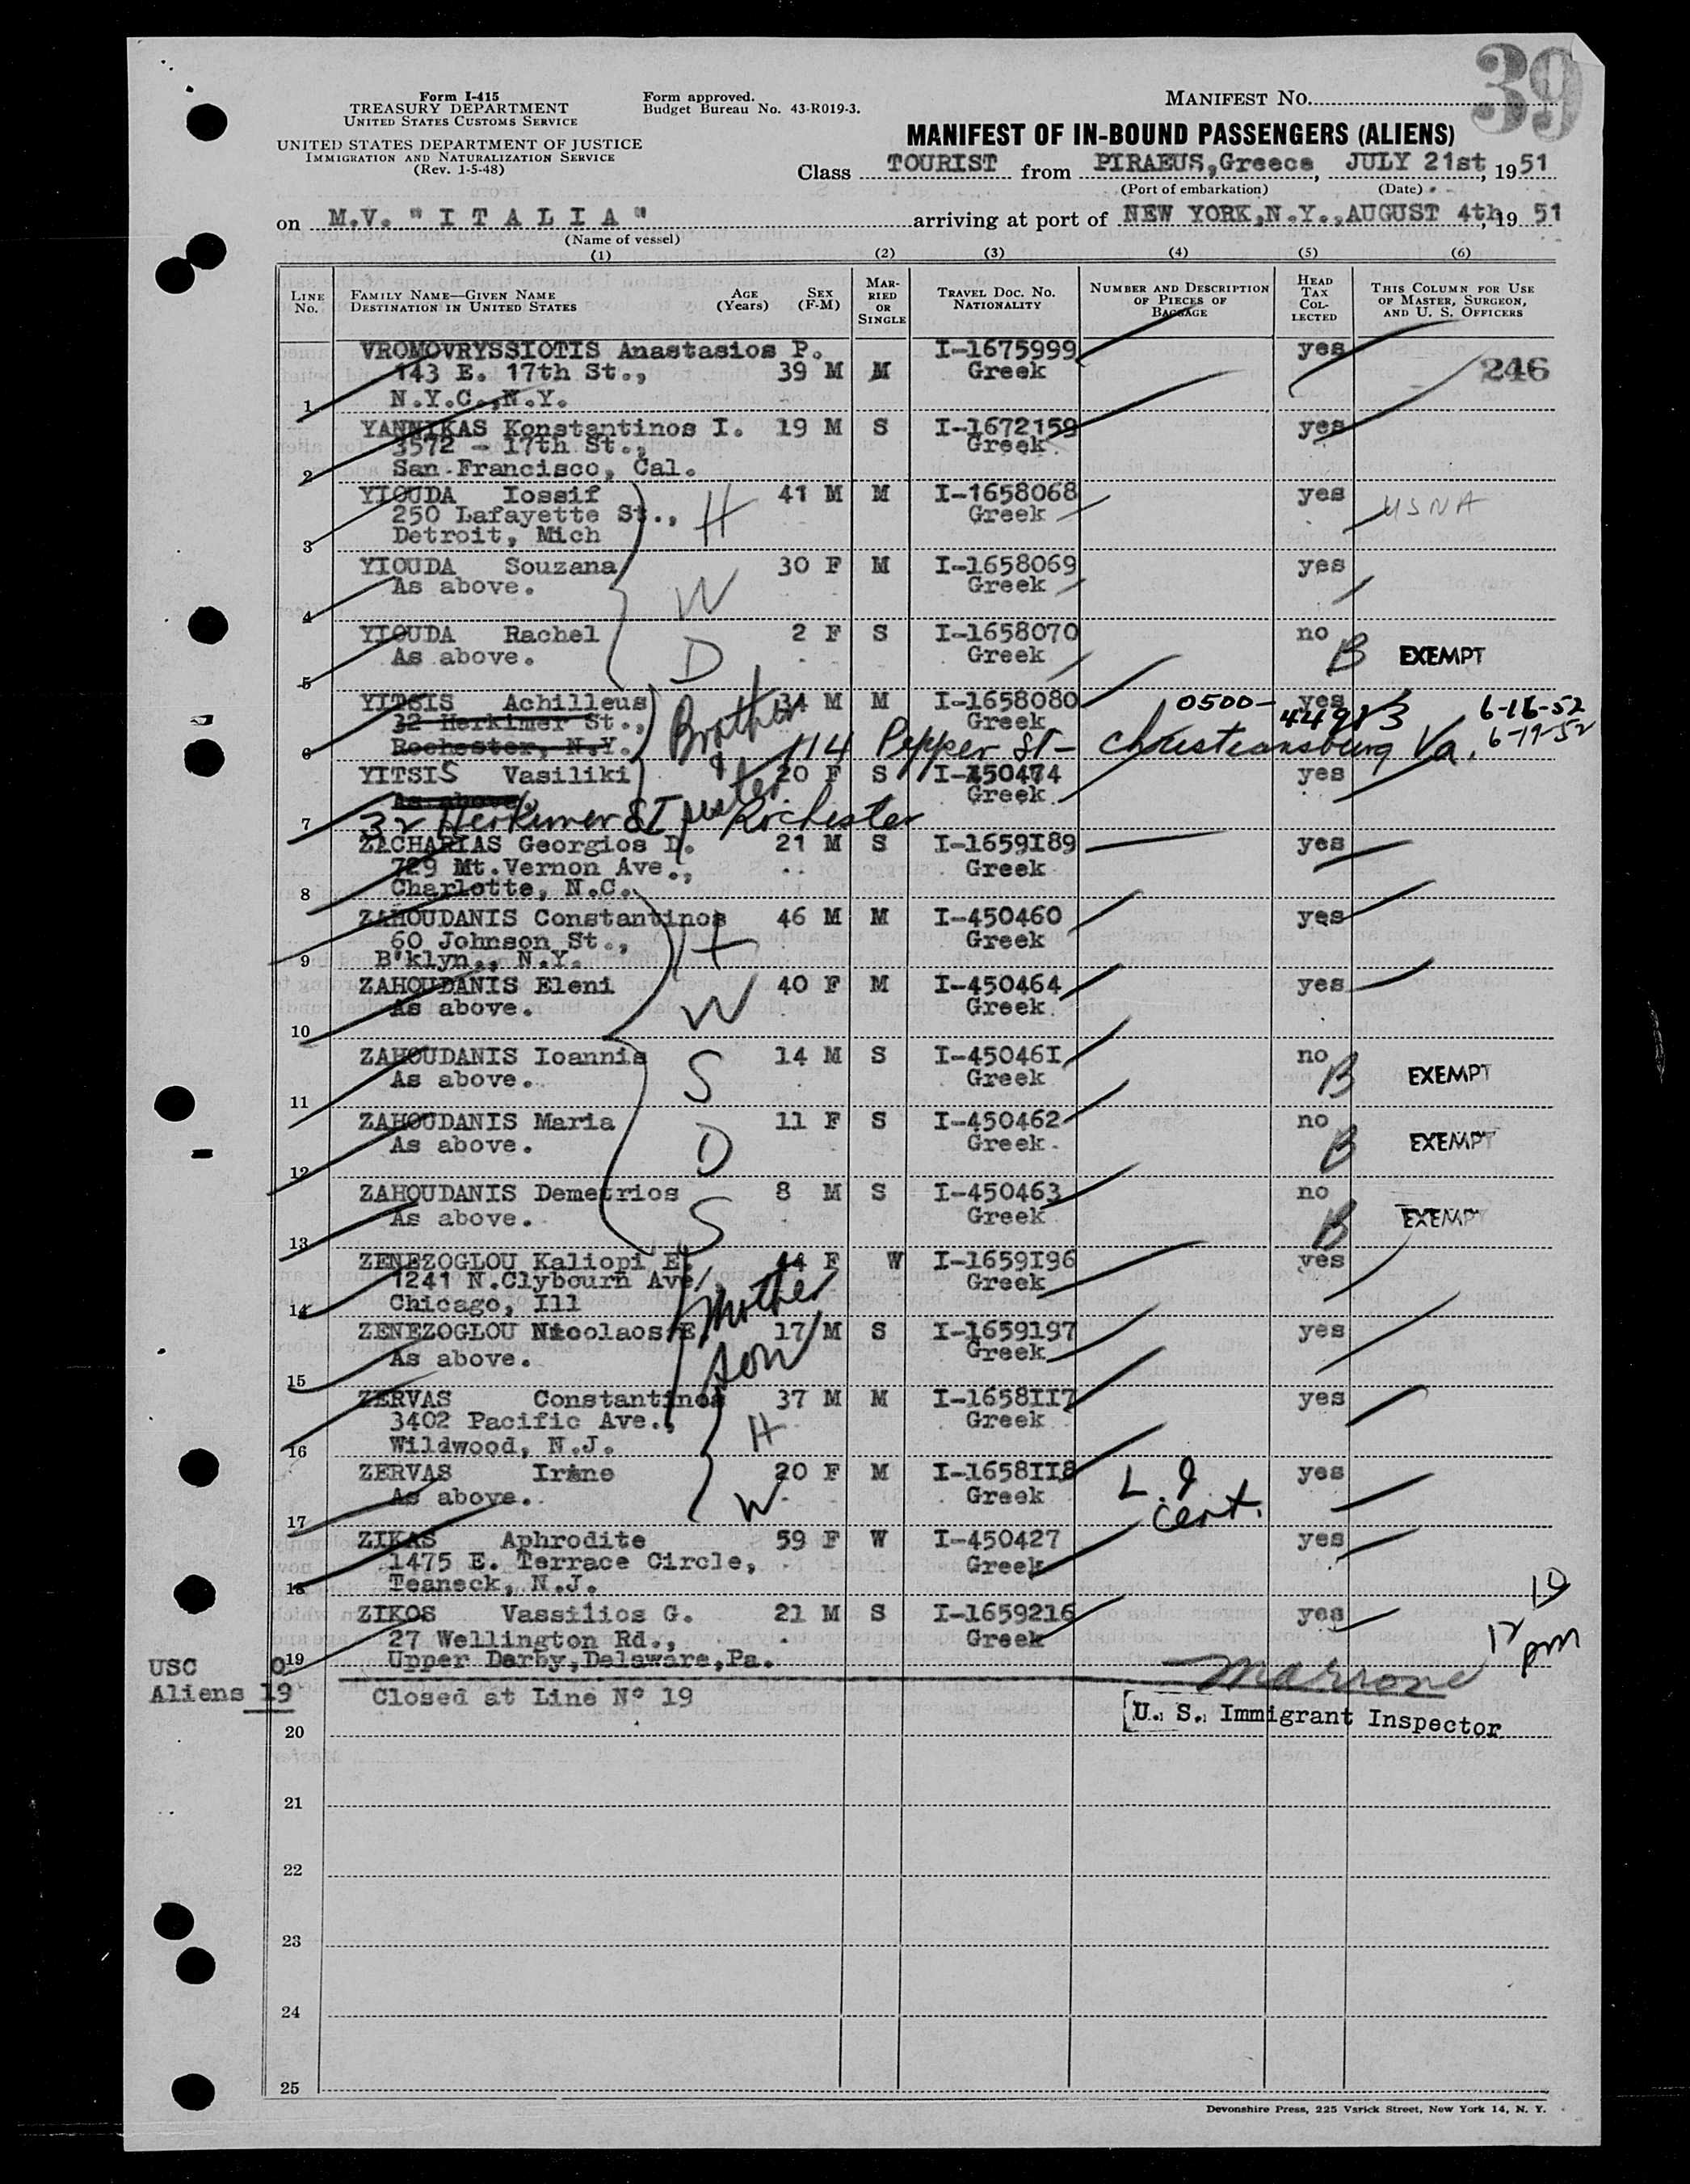 39
Form I-415
TREASURY DEPARTMENT
UNITED STATES CUSTOMS SERVICE
UNITED STATES DEPARTMENT OF JUSTICE
IMMIGRATION AND NATURALIZATION SERVICE
(Rev. 1-5-48)
Form approved.
Budget Bureau No. 43-R019-3.
MANIFEST NO.
MANIFEST OF IN-BOUND PASSENGERS (ALIENS)
Class TOURIST from PIRAEUS,Greece, JULY 21st, 1951
(Port of embarkation) (Date)
on M.V. "I T A L I A" arriving at port of NEW YORK,N.Y.,AUGUST 4th,19 51
(Name of vessel)
(1) (2) (3) (4) (5) (6)
LINE No. FAMILY NAME—GIVEN NAME DESTINATION IN UNITED STATES AGE (Years) SEX (F-M) MARRIED OR SINGLE TRAVEL DOC. NO. NATIONALITY NUMBER AND DESCRIPTION OF PIECES OF BAGGAGE HEAD TAX COLLECTED THIS COLUMN FOR USE OF MASTER, SURGEON, AND U. S. OFFICERS
VROMOVRYSSIOTIS Anastasios P. I-1675999 yes
143 E. 17th St., 39 M M Greek 246
1 N.Y.C.,N.Y.
YANNIKAS Konstantinos I. 19 M S I-1672159 yes
3572 - 17th St., Greek
2 San Francisco, Cal.
YIOUDA Iossif 41 M M I-1658068 yes
250 Lafayette St., H Greek USNA
3 Detroit, Mich
YIOUDA Souzana 30 F M I-1658069 yes
As above. W Greek
4
YIOUDA Rachel 2 F S I-1658070 no
As above. D Greek B EXEMPT
5
YITSIS Achilleus 34 M M I-1658080 0500- yes 6-16-52
32 Herkimer St., Brother Greek 44983 6-19-52
6 Rochester, N.Y. 114 Pepper St- Christiansburg Va.
YITSIS Vasiliki & sister 20 F S I-450474 yes
As above. Greek
7 32 Herkimer ST Rochester
ZACHARIAS Georgios D. 21 M S I-1659189 yes
729 Mt.Vernon Ave., Greek
8 Charlotte, N.C.
ZAHOUDANIS Constantinos 46 M M I-450460 yes
60 Johnson St., H Greek
9 B'klyn., N.Y.
ZAHOUDANIS Eleni 40 F M I-450464 yes
As above. W Greek
10
ZAHOUDANIS Ioannis 14 M S I-450461 no
As above. S Greek B EXEMPT
11
ZAHOUDANIS Maria 11 F S I-450462 no
As above. D Greek B EXEMPT
12
ZAHOUDANIS Demetrios 8 M S I-450463 no
As above. S Greek B EXEMPT
13
ZENEZOGLOU Kaliopi E. 44 F W I-1659196 yes
1241 N.Clybourn Ave, Mother Greek
14 Chicago, Ill
ZENEZOGLOU Nicolaos E. 17 M S I-1659197 yes
As above. son Greek
15
ZERVAS Constantinos 37 M M I-1658117 yes
3402 Pacific Ave., H Greek
16 Wildwood, N.J.
ZERVAS Irene 20 F M I-1658118 yes
As above. W Greek L.I cert.
17
ZIKAS Aphrodite 59 F W I-450427 yes
1475 E. Terrace Circle, Greek
18 Teaneck, N.J.
ZIKOS Vassilios G. 21 M S I-1659216 yes
27 Wellington Rd., Greek 12 10 pm
19 Upper Darby,Delaware,Pa.
USC 0
Aliens 19 Closed at Line Nº 19 Marrone
U. S. Immigrant Inspector
20
21
22
23
24
25
Devonshire Press, 225 Varick Street, New York 14, N. Y.